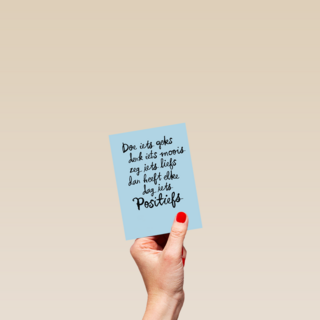 Doe iets geks
denk iets moois
zeg iets liefs
dan heeft elke
dag iets
Positiefs